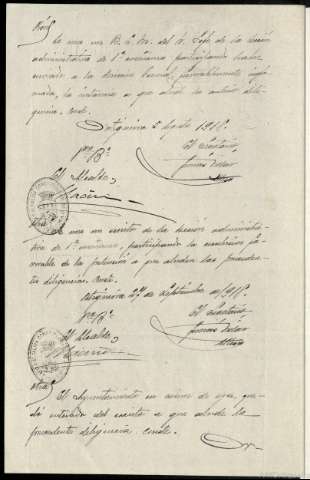 Se une un B. L. M. del Sr. Jefe de la Sección
administrativa de 1ª enseñanza participando haber
enviado a la Dirección General, favorablemente infor-
mada, la instancia a que alude la anterior dili-
gencia. Conste.
Antequera 5 Agosto 1918.
Vº Bº
El Secretario
El Alcalde,
une un escrito de la Sección administra-
tiva de 1ª enseñanza, participando la resolución fa-
vorable de la petición a que aluden las preceden-
tes diligencias. Conste.
Antequera 27 de Septiembre de 1918.
Vº Bº
El Secretario
El Alcalde,
otra/
El Ayuntamiento en sesión de ayer, que-
dó enterado del escrito a que alude la
precedente diligencia. Conste.